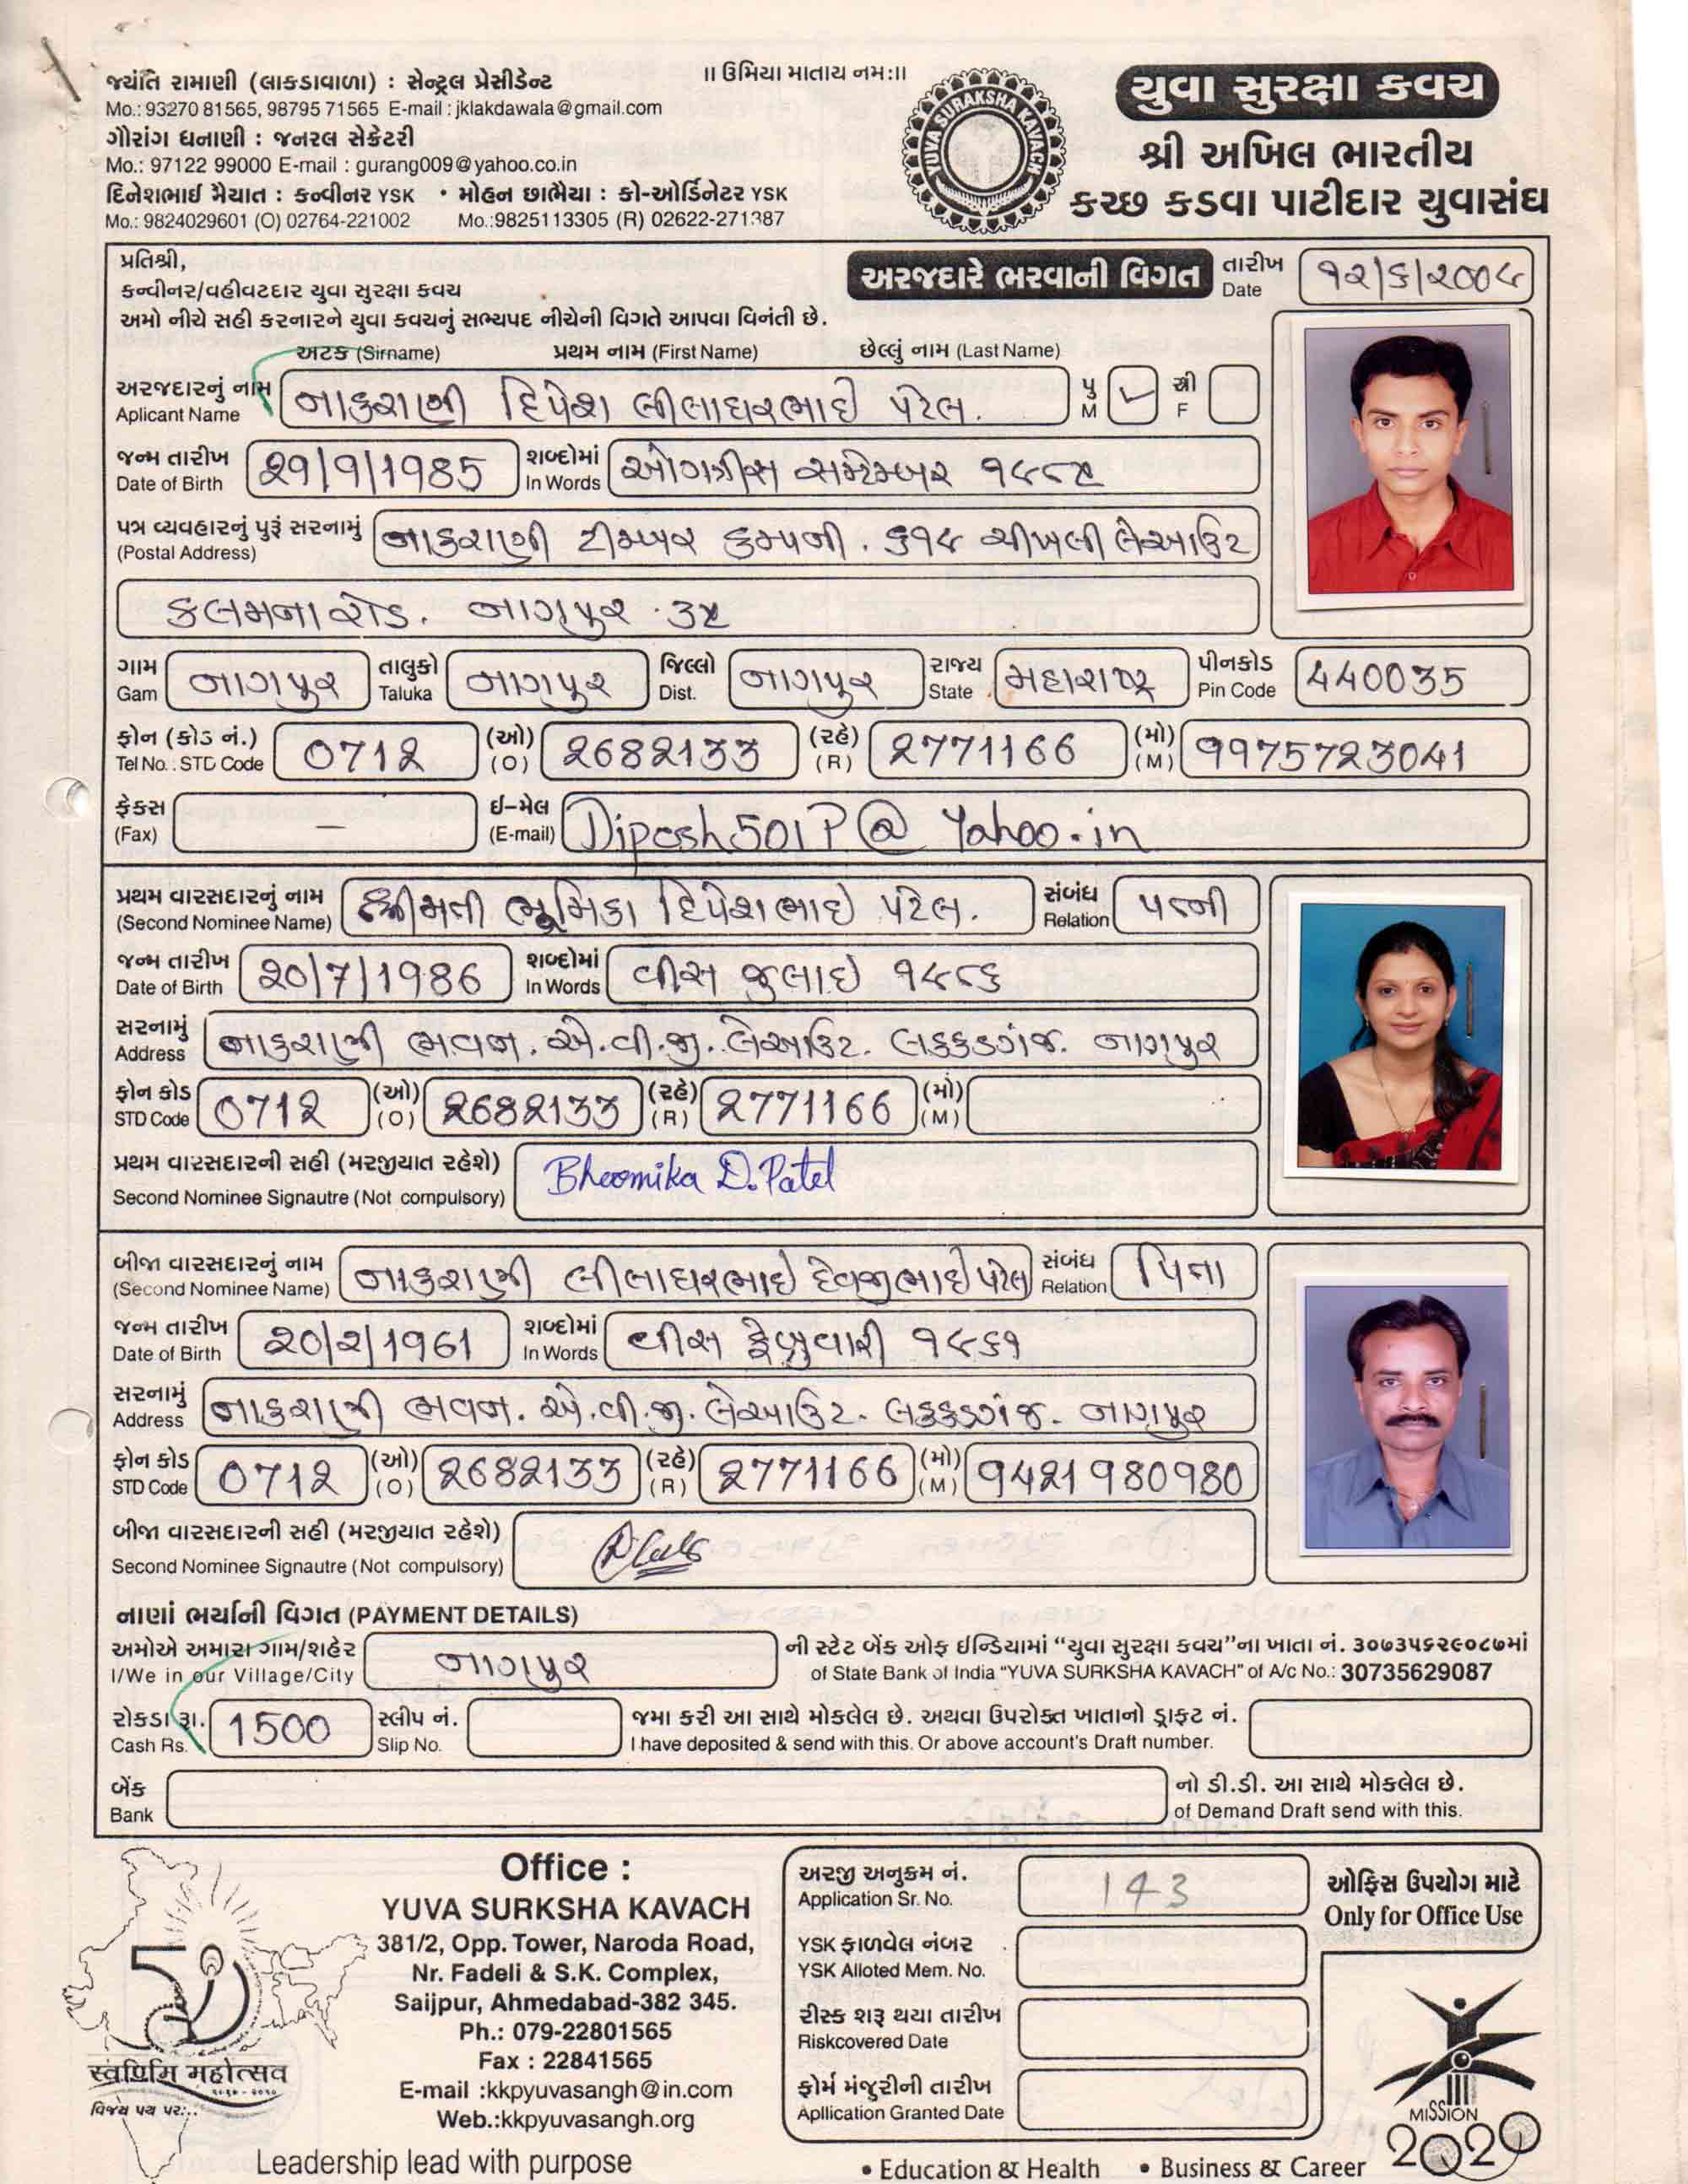 જ્યંતિ રામાણી (લાકડાવાળા) : સેન્ટ્રલ પ્રેસીડેન્ટ
Mo.: 93270 81565, 98795 71565 E-mail : jklakdawala@gmail.com
ગૌરાંગ ધનાણી : જનરલ સેક્રેટરી
Mo.: 97122 99000 E-mail : gurang009@yahoo.co.in
દિનેશભાઈ મૈયાત : કન્વીનર YSK • મોહન છાભૈયા : કો-ઓર્ડિનેટર YSK
Mo.: 9824029601 (O) 02764-221002 Mo.:9825113305 (R) 02622-271387
॥ ઉમિયા માતાય નમઃ॥
YUVA SURAKSHA KAVACH
યુવા સુરક્ષા કવચ
શ્રી અખિલ ભારતીય
કચ્છ કડવા પાટીદાર યુવાસંઘ
પ્રતિશ્રી,
કન્વીનર/વહીવટદાર યુવા સુરક્ષા કવચ
અમો નીચે સહી કરનારને યુવા કવચનું સભ્યપદ નીચેની વિગતે આપવા વિનંતી છે.
અરજદારે ભરવાની વિગત
તારીખ Date ૧૨/૬/૨૦૦૯
અટક (Sirname) પ્રથમ નામ (First Name) છેલ્લું નામ (Last Name)
અરજદારનું નામ Aplicant Name નાકરાણી દિપેશ લીલાધરભાઈ પટેલ. પુ M ✓ સ્ત્રી F
જન્મ તારીખ Date of Birth 29/9/1985 શબ્દોમાં In Words ઓગત્રીસ સપ્ટેમ્બર ૧૯૮૫
પત્ર વ્યવહારનું પુરૂં સરનામું (Postal Address) નાકરાણી ટીમ્બર કમ્પની. ૬૧૯ ચીખલી લેઆઉટ
કલમના રોડ. નાગપુર. ૩૫
ગામ Gam નાગપુર તાલુકો Taluka નાગપુર જિલ્લો Dist. નાગપુર રાજ્ય State મહારાષ્ટ્ર પીનકોડ Pin Code 440035
ફોન (કોડ નં.) Tel No.. STD Code 0712 (ઓ) (O) 2682133 (રહે) (R) 2771166 (મો) (M) 9975723041
ફેકસ (Fax) – ઈ-મેલ (E-mail) Dipesh501P@Yahoo.in
પ્રથમ વારસદારનું નામ (Second Nominee Name) શ્રીમતી ભૂમિકા દિપેશભાઈ પટેલ. સંબંધ Relation પત્ની
જન્મ તારીખ Date of Birth 20/7/1986 શબ્દોમાં In Words વીસ જુલાઈ ૧૯૮૬
સરનામું Address નાકરાણી ભવન. એ.વી.જી. લેઆઉટ. લકકડગંજ. નાગપુર
ફોન કોડ STD Code 0712 (ઓ) (O) 2682133 (રહે) (R) 2771166 (મો) (M)
પ્રથમ વારસદારની સહી (મરજીયાત રહેશે)
Second Nominee Signautre (Not compulsory) Bhoomika D. Patel
બીજા વારસદારનું નામ (Second Nominee Name) નાકરાણી લીલાધરભાઈ દેવજીભાઈ પટેલ સંબંધ Relation પિતા
જન્મ તારીખ Date of Birth 20/2/1961 શબ્દોમાં In Words વીસ ફેબ્રુવારી ૧૯૬૧
સરનામું Address નાકરાણી ભવન. એ.વી.જી. લેઆઉટ. લકકડગંજ. નાગપુર
ફોન કોડ STD Code 0712 (ઓ) (O) 2682133 (રહે) (R) 2771166 (મો) (M) 9421980980
બીજા વારસદારની સહી (મરજીયાત રહેશે)
Second Nominee Signautre (Not compulsory)
નાણાં ભર્યાની વિગત (PAYMENT DETAILS)
અમોએ અમારા ગામ/શહેર નાગપુર ની સ્ટેટ બેંક ઓફ ઈન્ડિયામાં “યુવા સુરક્ષા કવચ”ના ખાતા નં. ૩૦૭૩૫૬૨૯૦૮૭માં
I/We in our Village/City of State Bank of India “YUVA SURKSHA KAVACH” of A/c No.: 30735629087
રોકડા રૂા. 1500 સ્લીપ નં. જમા કરી આ સાથે મોકલેલ છે. અથવા ઉપરોક્ત ખાતાનો ડ્રાફટ નં.
Cash Rs. Slip No. I have deposited & send with this. Or above account's Draft number.
બેંક નો ડી.ડી. આ સાથે મોકલેલ છે.
Bank of Demand Draft send with this.
Office :
YUVA SURKSHA KAVACH
381/2, Opp. Tower, Naroda Road,
Nr. Fadeli & S.K. Complex,
Saijpur, Ahmedabad-382 345.
Ph.: 079-22801565
Fax : 22841565
E-mail :kkpyuvasangh@in.com
Web.:kkpyuvasangh.org
અરજી અનુક્રમ નં. Application Sr. No. 143
YSK ફાળવેલ નંબર YSK Alloted Mem. No.
રીસ્ક શરૂ થયા તારીખ Riskcovered Date
ફોર્મ મંજુરીની તારીખ Apllication Granted Date
ઓફિસ ઉપયોગ માટે
Only for Office Use
50
स्वर्णिम महोत्सव
વિજય પથ પર...
MISSION
2020
Leadership lead with purpose
• Education & Health • Business & Career